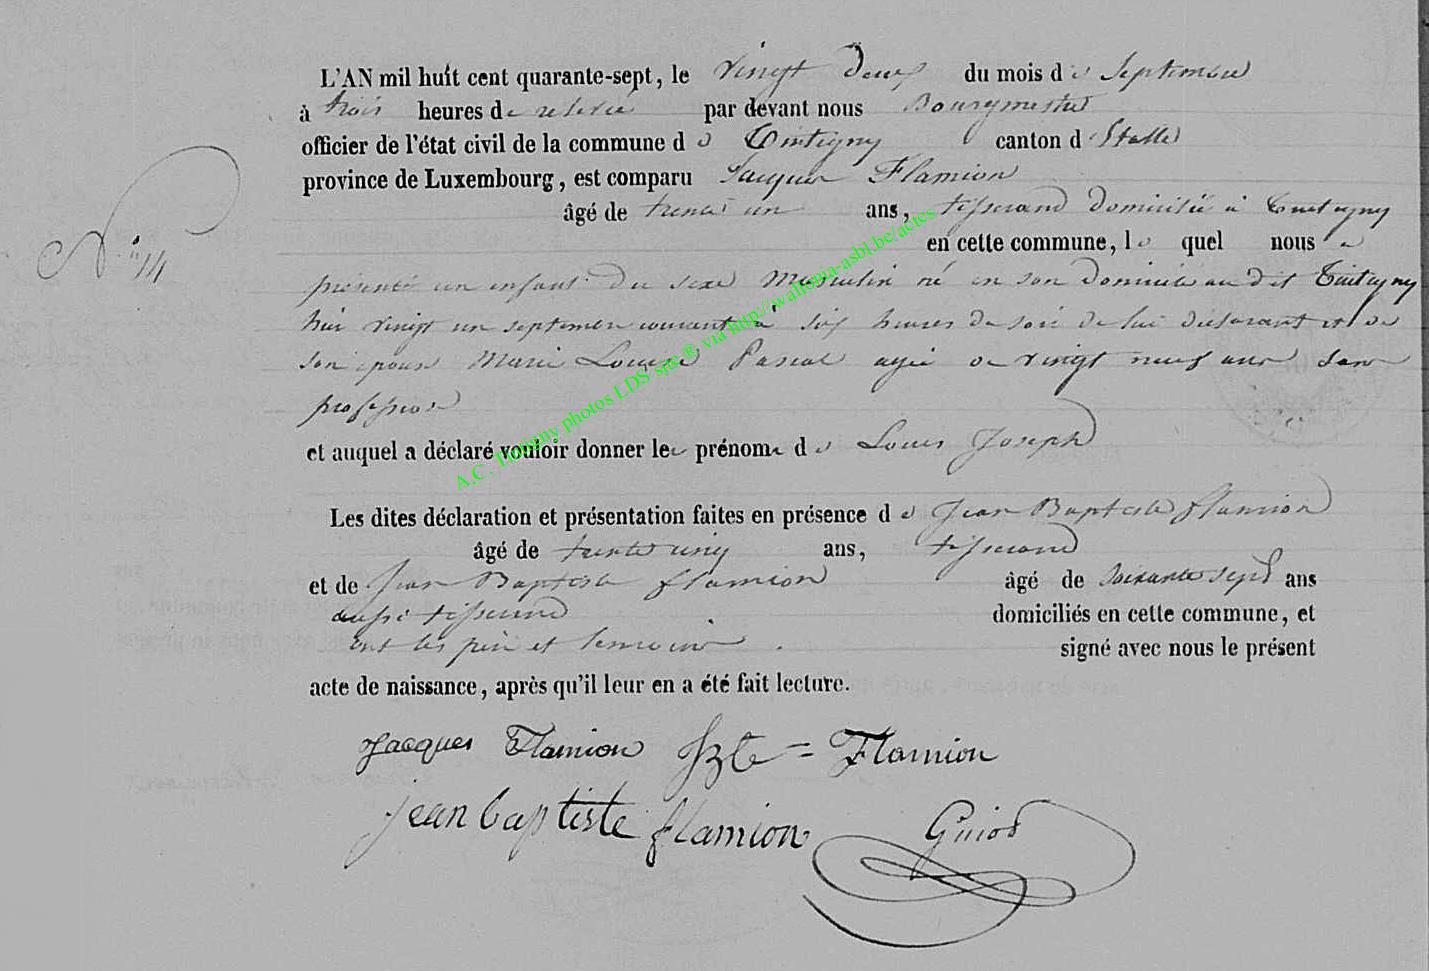 L'AN mil huit cent quarante-sept, le vingt deux du mois de Septembre
à trois heures de relevée par devant nous Bourgmestre
officier de l'état civil de la commune de Tintigny canton d'Etalle
province de Luxembourg, est comparu Jacques Flamion
âgé de trente un ans, tisserand domicilié à Tintigny
en cette commune, le quel nous a
N° 14
présenté un enfant du sexe Masculin né en son domicile au dit Tintigny
hier vingt un septembre courant à six heures du soir de lui déclarant et de
son epouse Marie Louise Pascal agée de vingt neuf ans sans
profession
et auquel a déclaré vouloir donner les prénoms de Louis Joseph
Les dites déclaration et présentation faites en présence de Jean Baptiste flamion
âgé de trente cinq ans, tisserand
et de Jean Baptiste flamion âgé de soixante sept ans
aussi tisserand domiciliés en cette commune, et
ont les père et temoins signé avec nous le présent
acte de naissance, après qu'il leur en a été fait lecture.
Jacques Flamion JBte = Flamion
jean baptiste flamion Guiot
A.C. Tintigny photos LDS site ® via http://wallonia-asbl.be/actes